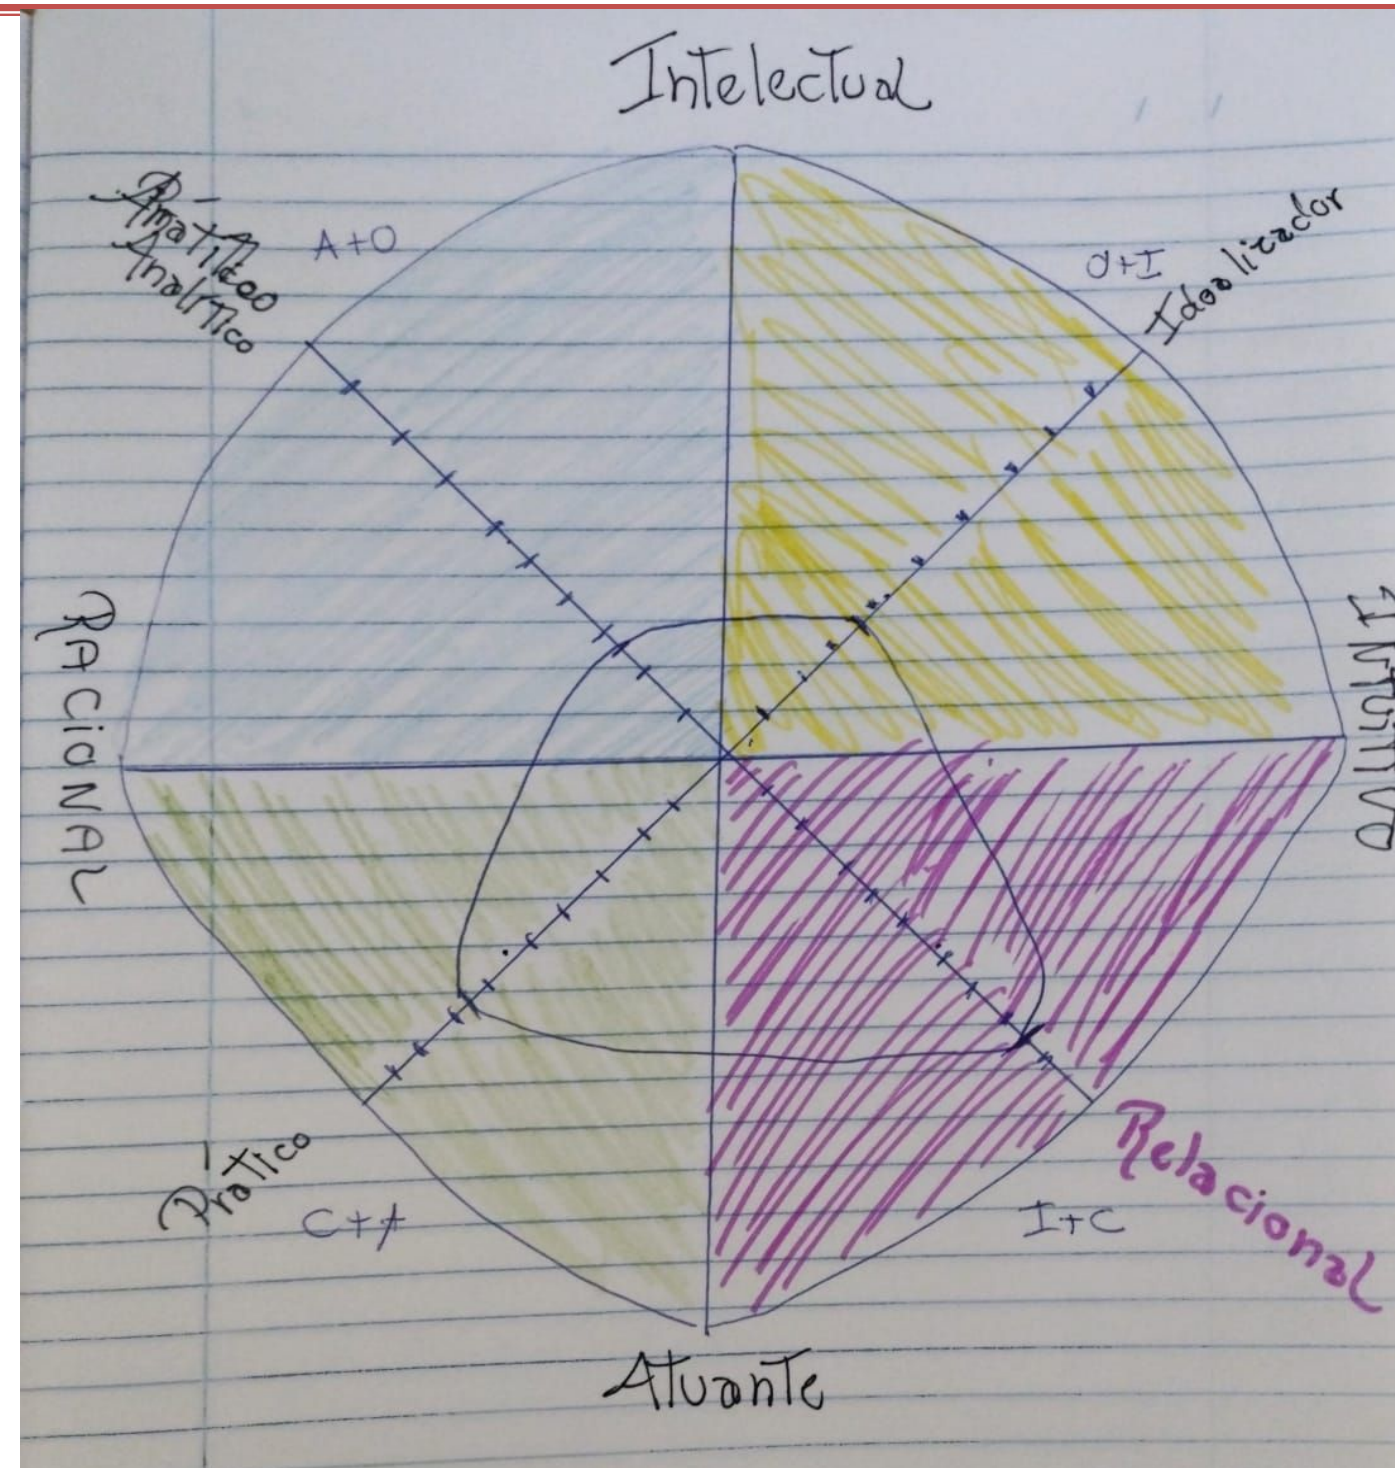 Intelectual
Analítico
A+O
O+I
Idealizador
RACIONAL
INTUITIVO
Prático
C+A
I+C
Relacional
Atuante